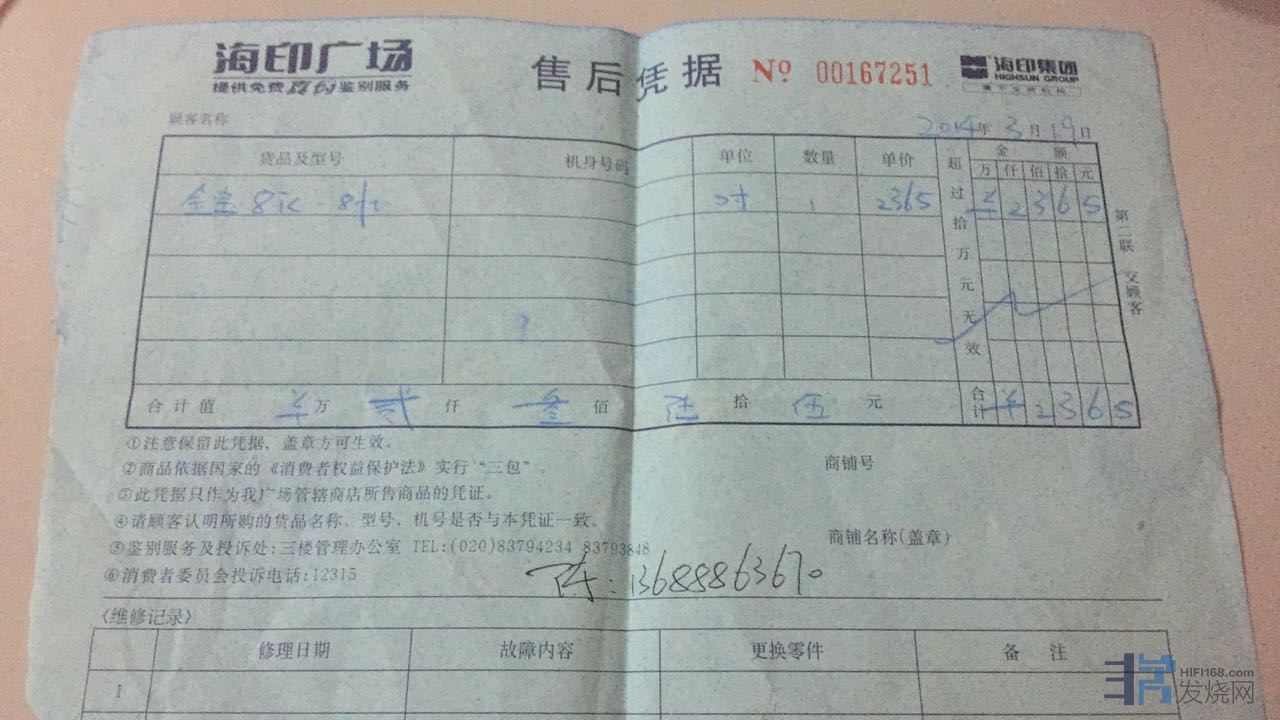 海印广场
提供免费真伪鉴别服务
售后凭据 Nº 00167251
海印集团
HIGHSUN GROUP
顾客名称
2014年3月19日
货品及型号 机身号码 单位 数量 单价 超过拾万元无效 金额
万仟佰拾元
8 2365 ¥2365
第二联 交顾客
合计值 万 贰仟叁佰陆拾伍元 合计 ¥2365
①注意保留此凭据、盖章方可生效。
②商品依据国家的《消费者权益保护法》实行“三包”。
商铺号
③此凭据只作为我广场管辖商店所售商品的凭证。
④请顾客认明所购的货品名称、型号、机号是否与本凭证一致。
商铺名称(盖章)
⑤鉴别服务及投诉处:三楼管理办公室 TEL:(020)83794234 83793848
⑥消费者委员会投诉电话:12315
陈:13688863670
〈维修记录〉
修理日期 故障内容 更换零件 备注
1
HIFI168.com
发烧网